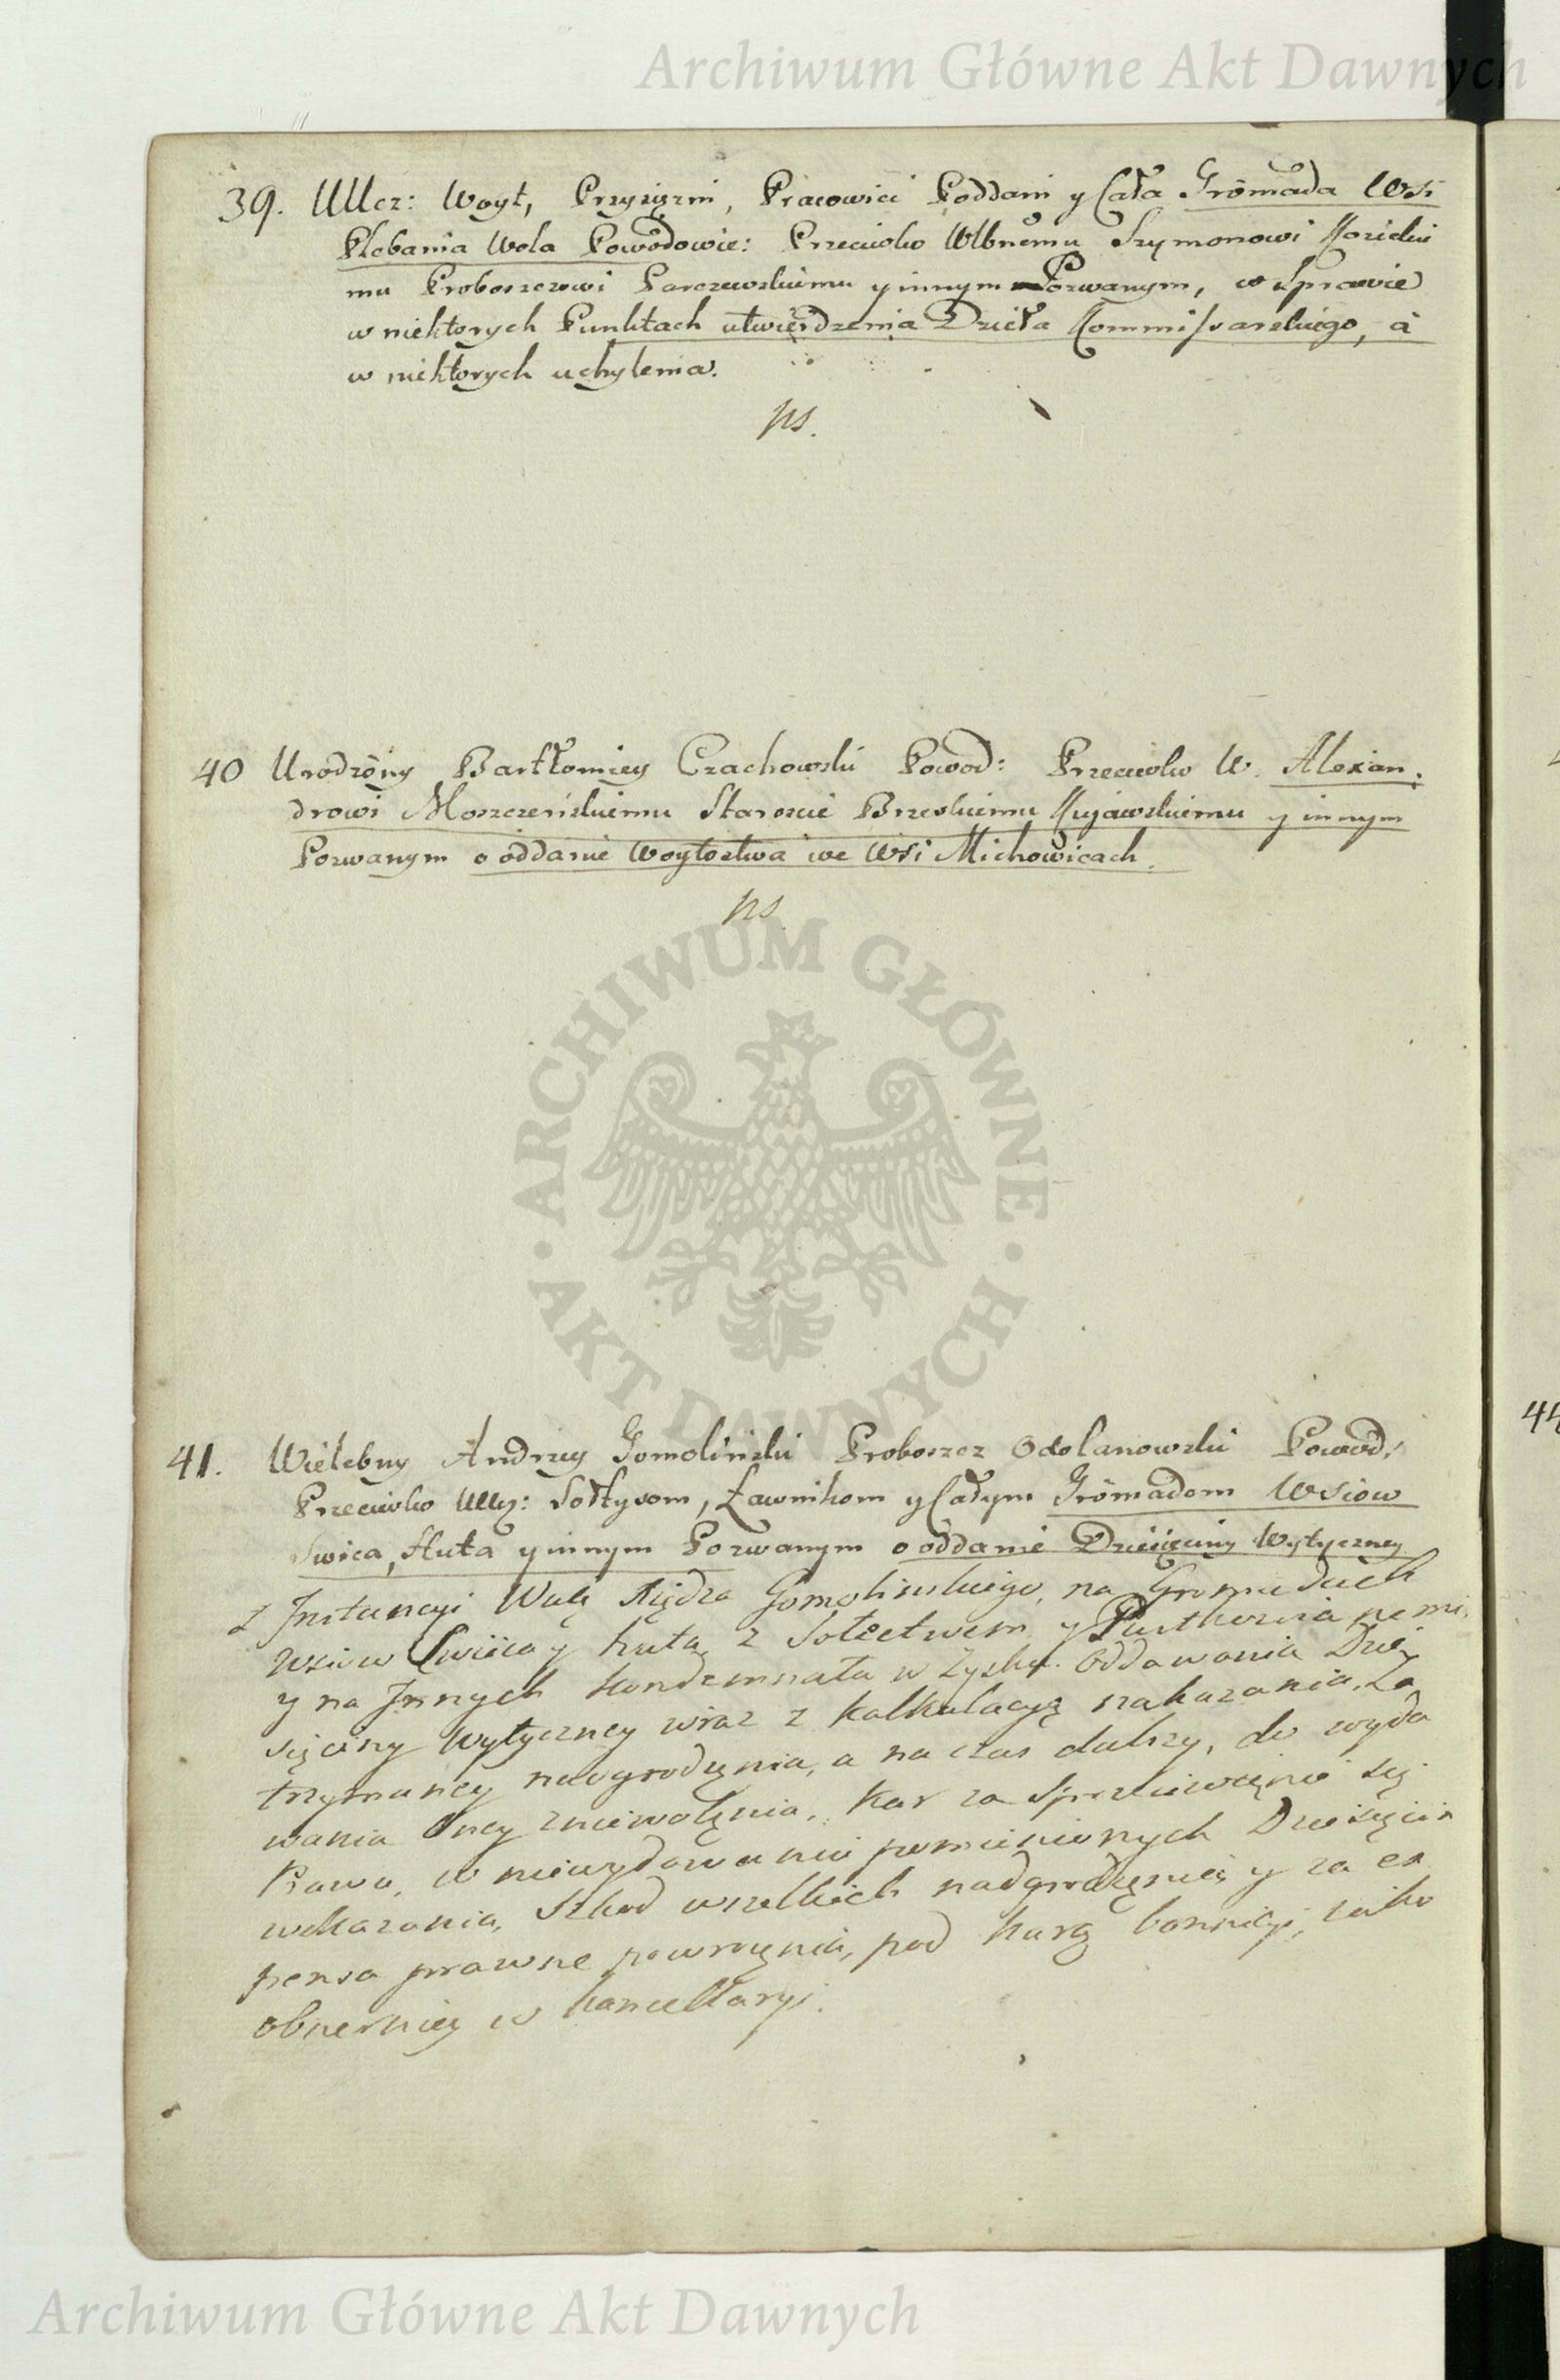 Archiwum Główne Akt Dawnych
39. UUcz: Woyt, Przysiężni, Pracowici Poddani y Cała Gromada Wsi
Plebania Wola Powodowie: Przeciwko Wlbnemu Szymonowi Kozicki
mu Proboszczowi Parczewskiemu y innym Pozwanym, w Sprawie
w niektorych Punktach utwierdzenia Dzieła Kommissarskiego, à
w niektorych uchylenia.
ns.
40 Urodzony Bartłomiey Czachowski Powod: Przeciwko W. Alexan,
drowi Moszczeńskiemu Staroscie Brzeskiemu Kujawskiemu y innym
Pozwanym o oddanie Woytostwa we Wsi Michowicach.
ns
ARCHIWUM GŁÓWNE
AKT DAWNYCH
41. Wielebny Andrzey Gomoliński Proboszcz Odolanowski Powod:
Przeciwko UUcz: Sołtysom, Ławnikom y Całym Gromadom Wsiow
Swica, Huta y innym Pozwanym o oddanie Dziesięciny Wytyczney
Z Instancyi Xiędza Gomolinskiego, na Gromadach
Wsiow Swieca y huta, z Sołectwem y
y na Innych kondemnata w zysku. Oddawania Dzie
sięciny Wytyczney wraz z kalkulacyą nakazania. Za
trzymaney nadgrodzenia, a na czas dalszy, do wyda
wania Oney zniewolenia, kar za sprzeciwienie się
Prawu, w niewydawaniu pomienionych Dziesięcin
wskazania, Szkod wszelkich nadgrodzenia y za ex
pensa prawne powrocenia, pod karą bannicyi, jako
obszerniey w kancellaryi.
44
Archiwum Główne Akt Dawnych